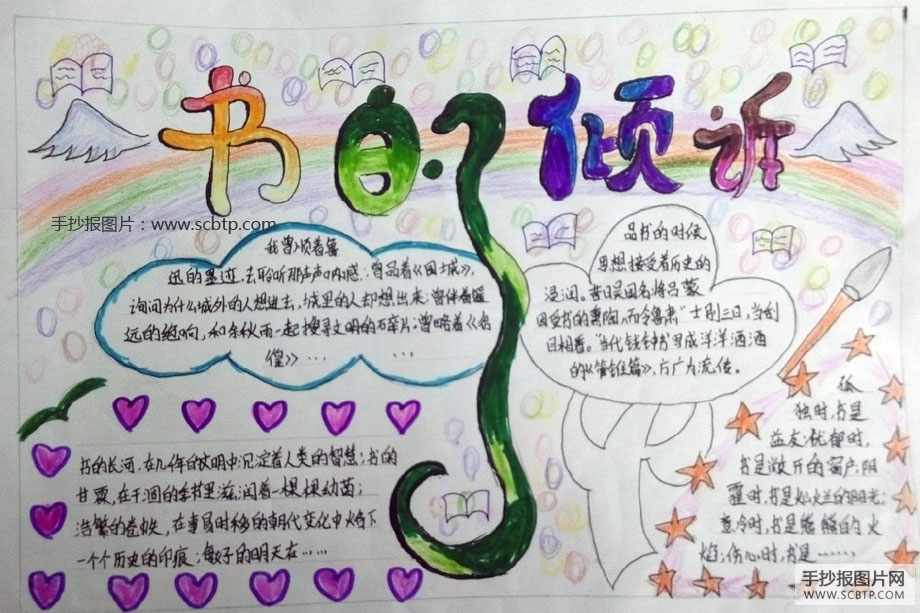 书的倾诉
手抄报图片：www.scbtp.com
我曾顺着
迅的墨迹，去聆听那声声《呐喊》；曾品着《围城》，
询问为什么城外的人想进去，城里的人却想出来；曾伴着
远的绝响，和余秋雨一起搜寻文明的碎片；曾
》……
品书的时候
思想接受着历史的
浸润。昔日吴国名将吕蒙
因受书的熏陶，而令鲁肃“士别三日，当刮
目相看。”当代钱钟书写成洋洋洒洒
的《管锥篇》，方广为流传。
书的长河，在几千年的文明中沉淀着人类的智慧；书的
甘霖，在千回的季节里滋润着一棵棵幼苗；
浩繁的卷帙，在事易时移的朝代变化中烙下
一个个历史的印痕；莘莘学子的明天在……
孤
独时，书是
益友；忧郁时，
书是敞开的窗户；阴
霾时，书是灿烂的阳光；
寒冷时，书是熊熊的火
焰；伤心时，书是……
手抄报图片网
WWW.SCBTP.COM